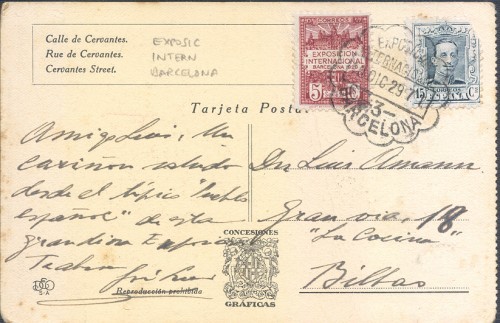 Calle de Cervantes.
Rue de Cervantes.
Cervantes Street.
EXPOSIC
INTERN
BARCELONA
CORREOS
EXPOSICIÓN
INTERNACIONAL
BARCELONA 1929
5 CTS
DIC 29
-3-
BARCELONA
15 CTS
Tarjeta Postal
Amigo Luis, Un
cariñoso saludo
desde el típico "pueblo
español" de esta
grandiosa Exposición
Don Luis Amann.
Gran via, 18
"La Cocina"
Bilbao
CONCESIONES
GRÁFICAS
Reproducción prohibida
S.A